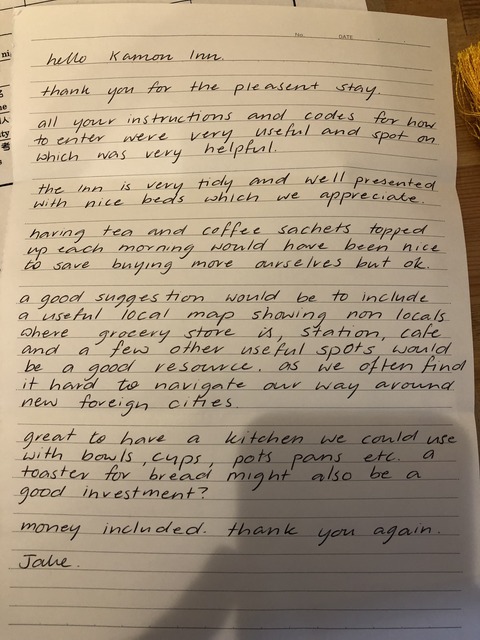 No.
DATE
hello Kamon Inn.
thank you for the pleasent stay.
all your instructions and codes for how
to enter were very useful and spot on
which was very helpful.
the Inn is very tidy and well presented
with nice beds which we appreciate.
having tea and coffee sachets topped
up each morning would have been nice
to save buying more ourselves but ok.
a good suggestion would be to include
a useful local map showing non locals
where grocery store is, station, cafe
and a few other useful spots would
be a good resource. as we often find
it hard to navigate our way around
new foreign cities.
great to have a kitchen we could use
with bowls, cups, pots pans etc. a
toaster for bread might also be a
good investment?
money included. thank you again.
Jake.